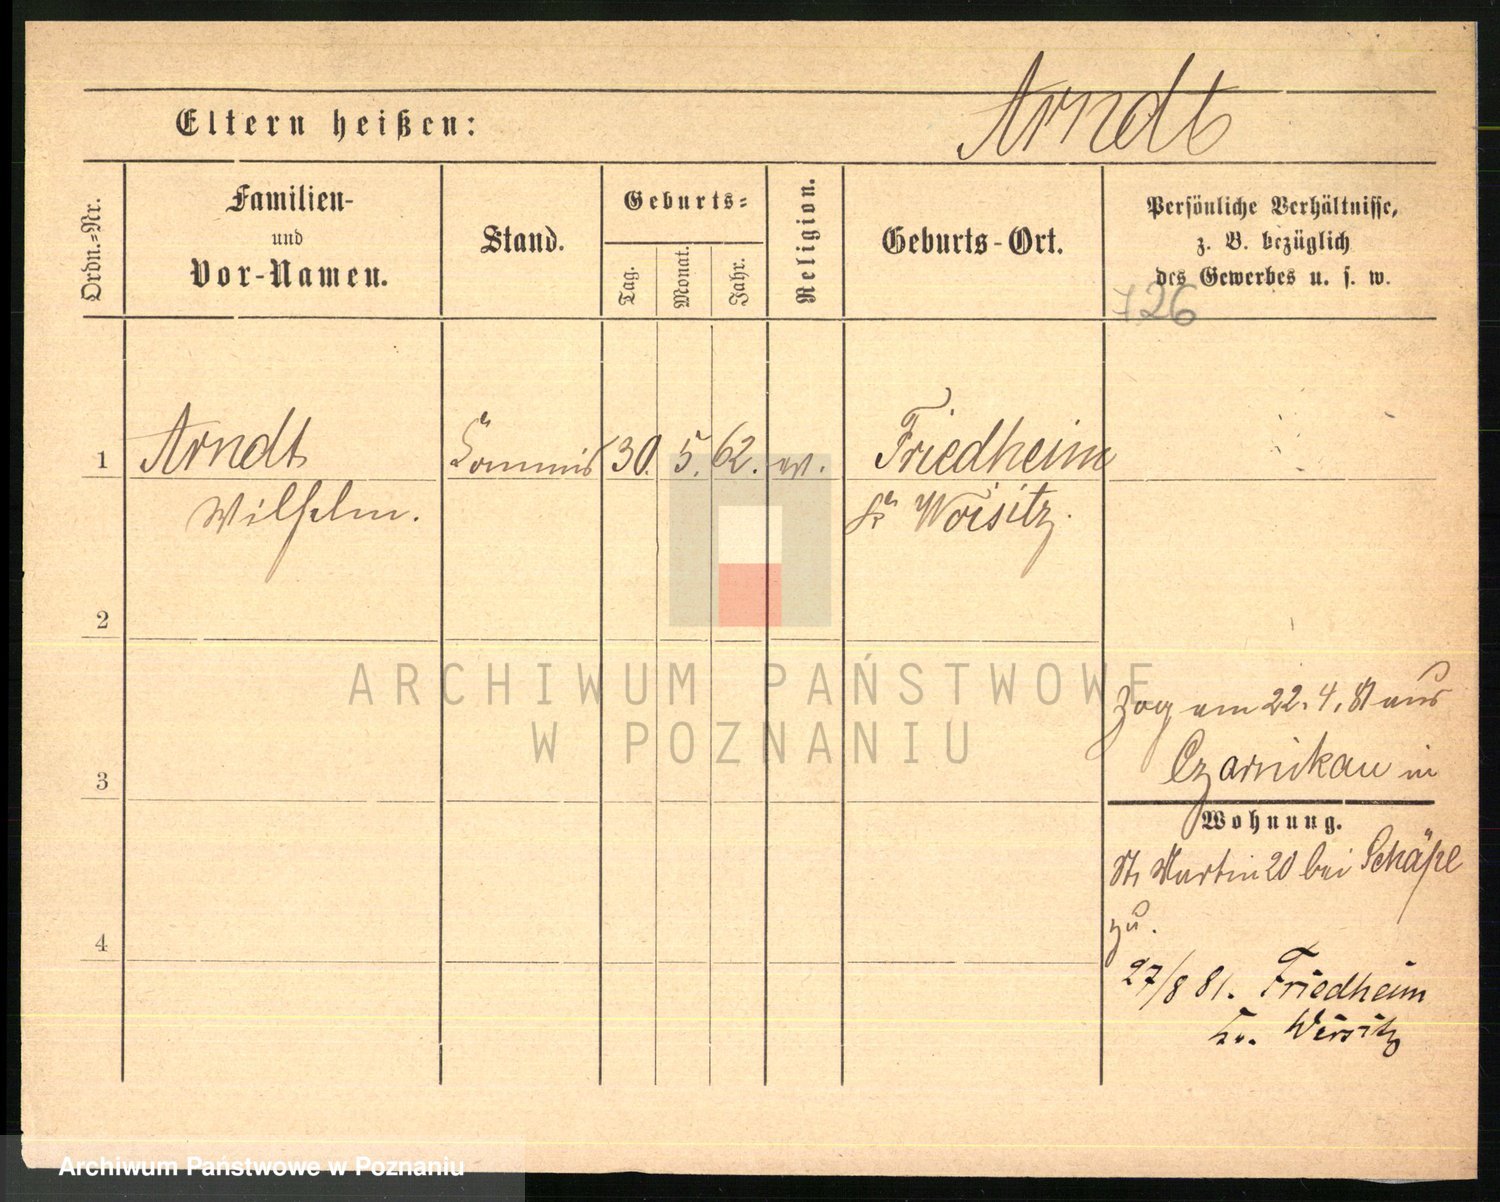 Arndt
Eltern heißen:
Ordn.=Nr.
Familien-
und
Vor-Namen.
Stand.
Geburts=
Tag.
Monat.
Jahr.
Religion.
Geburts-Ort.
Persönliche Verhältnisse,
z. B. bezüglich
des Gewerbes u. s. w.
726
1 Arndt Commis 30. 5. 62. ev. Friedheim
Wilhelm. Kr Woisitz.
2
ARCHIWUM PAŃSTWOWE
W POZNANIU
zog am 22. 4. 81 aus
Czarnikau in
3
Wohnung.
St. Martin 20 bei Schäpe
zu.
4
27/8 81. Friedheim
Kr. Wirsitz
Archiwum Państwowe w Poznaniu